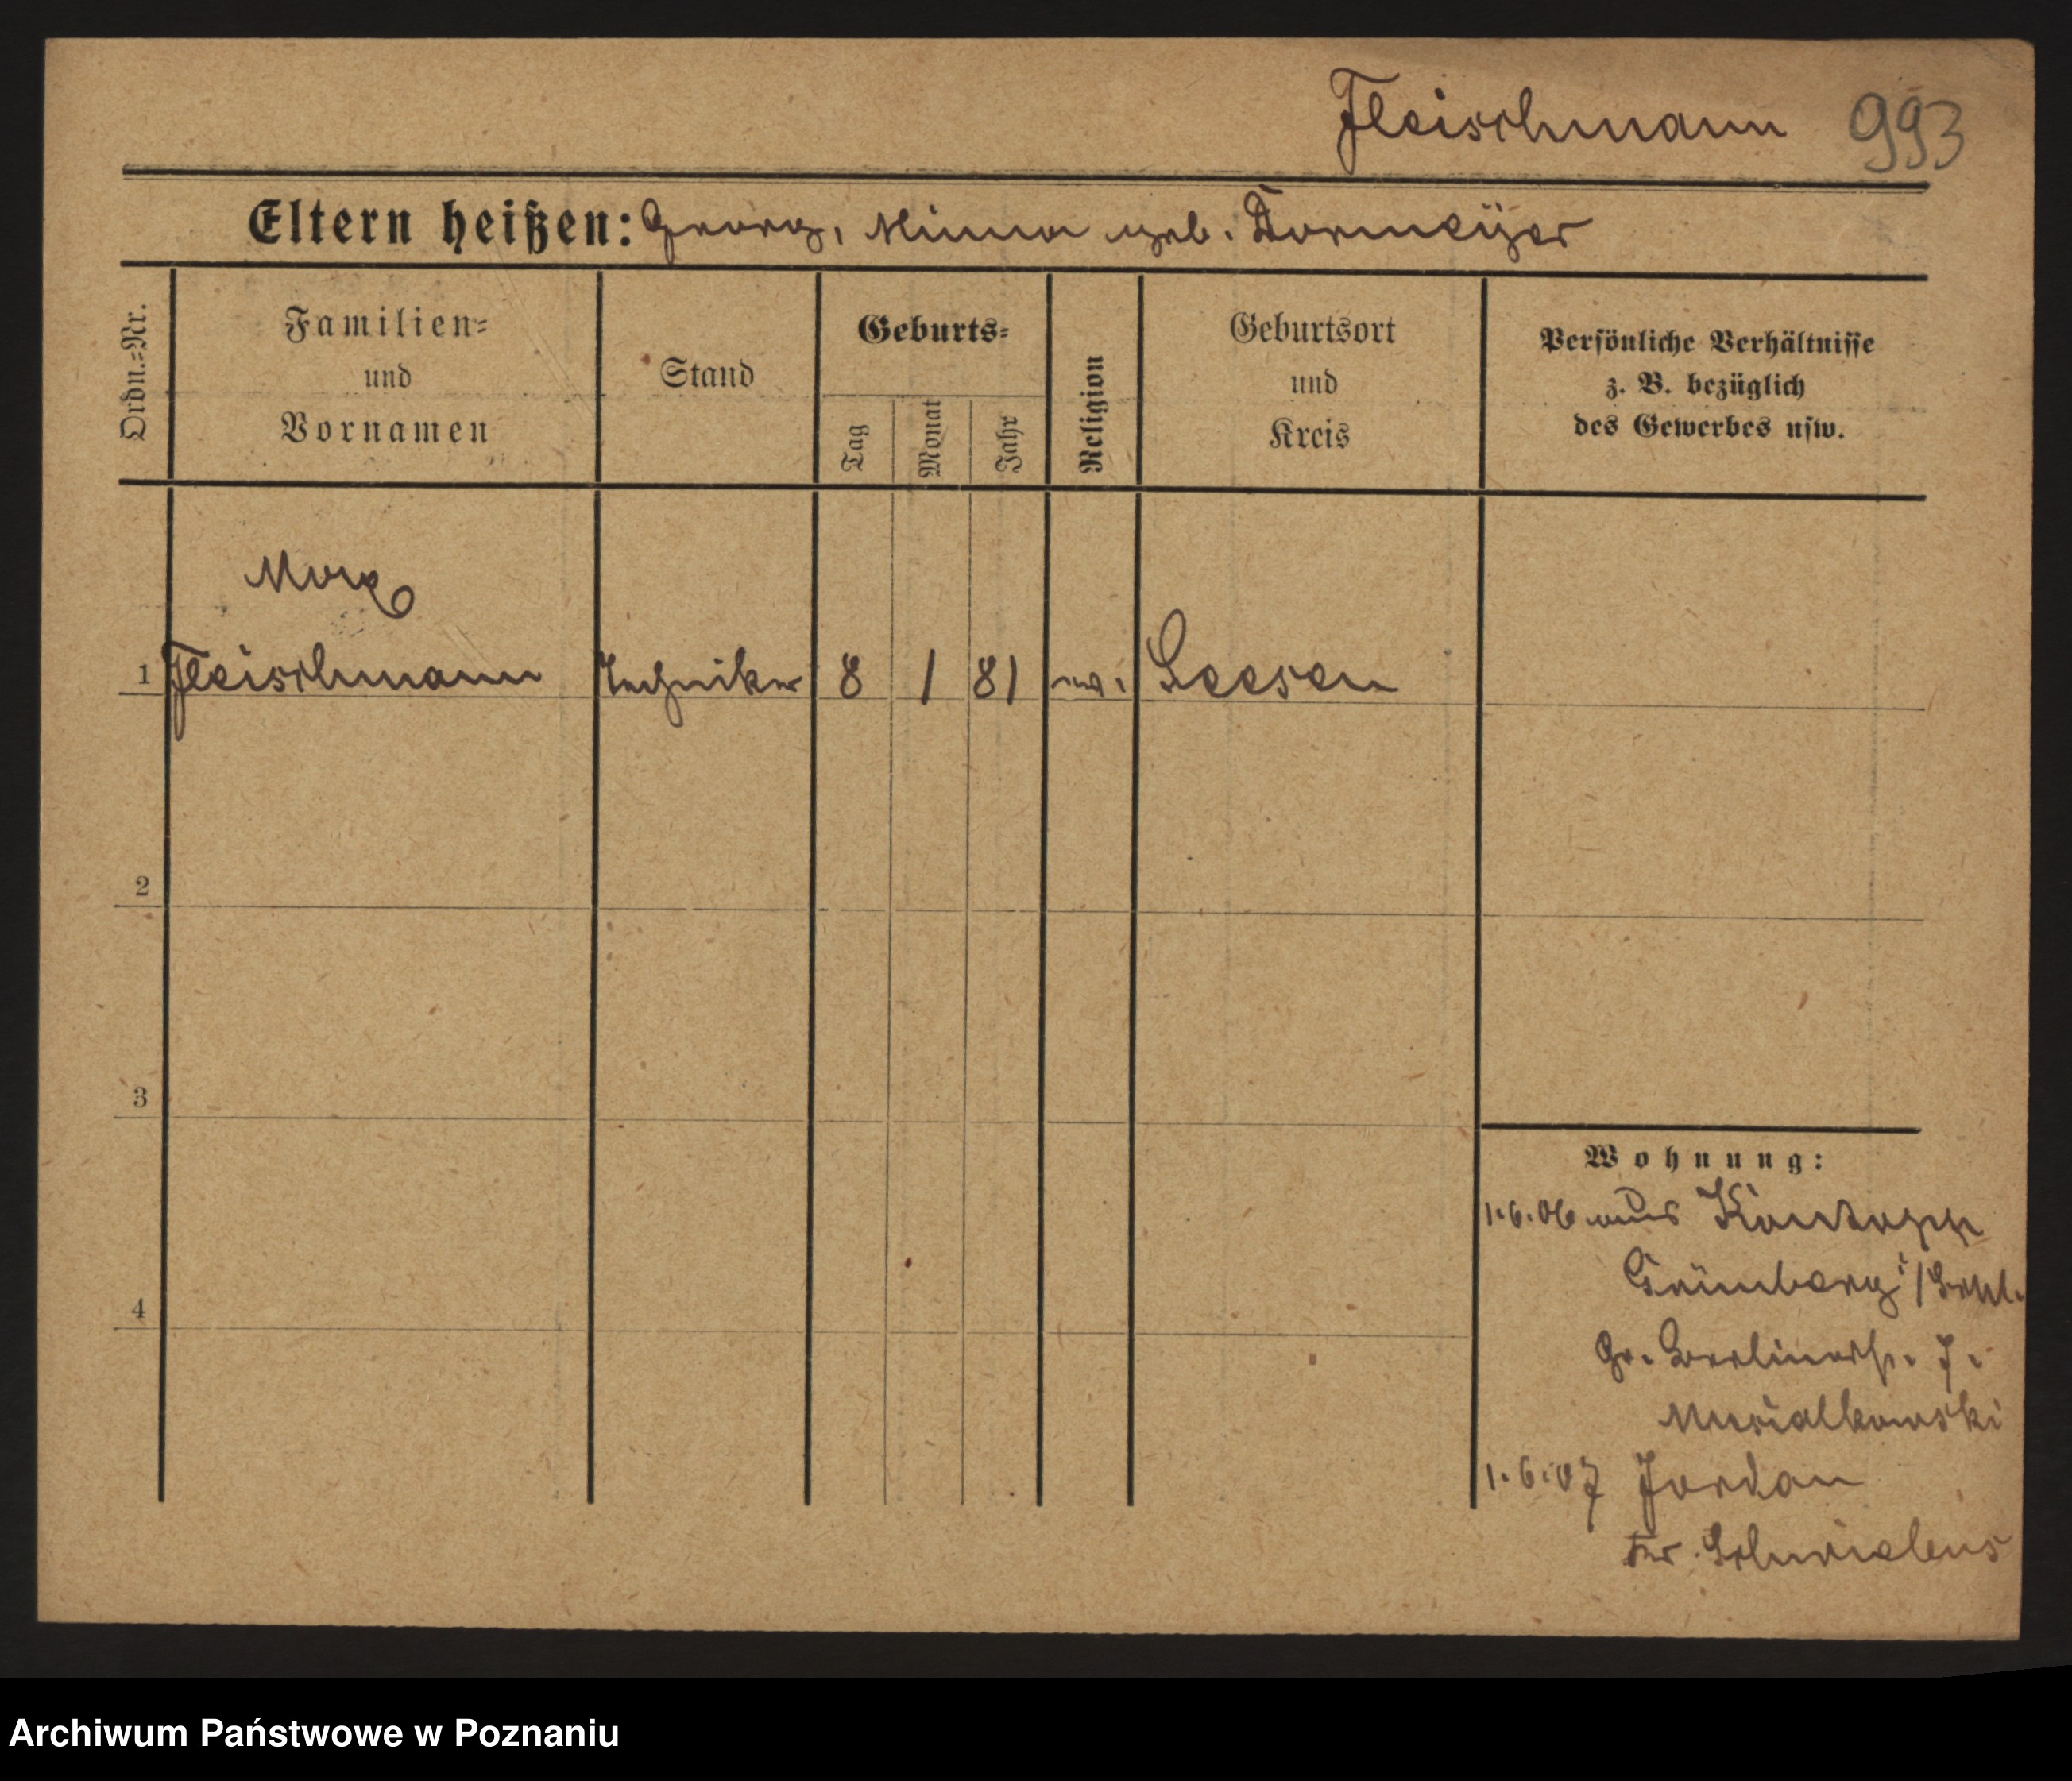 Fleischmann 993
Eltern heißen: Georg, Minna geb. Dormeÿer
Ordn.-Nr.
Familien-
und
Vornamen
Stand
Geburts-
Tag
Monat
Jahr
Religion
Geburtsort
und
Kreis
Persönliche Verhältnisse
z. B. bezüglich
des Gewerbes usw.
Max
1 Fleischmann Techniker 8 1 81 ev. Seesen
2
3
4
Wohnung:
1.6.06 aus Kontopp
Grünberg i/Schl.
Gr. Berlinerstr. 7.
Musialkowski
1.6.07 Jordan
Kr. Schwiebus
Archiwum Państwowe w Poznaniu